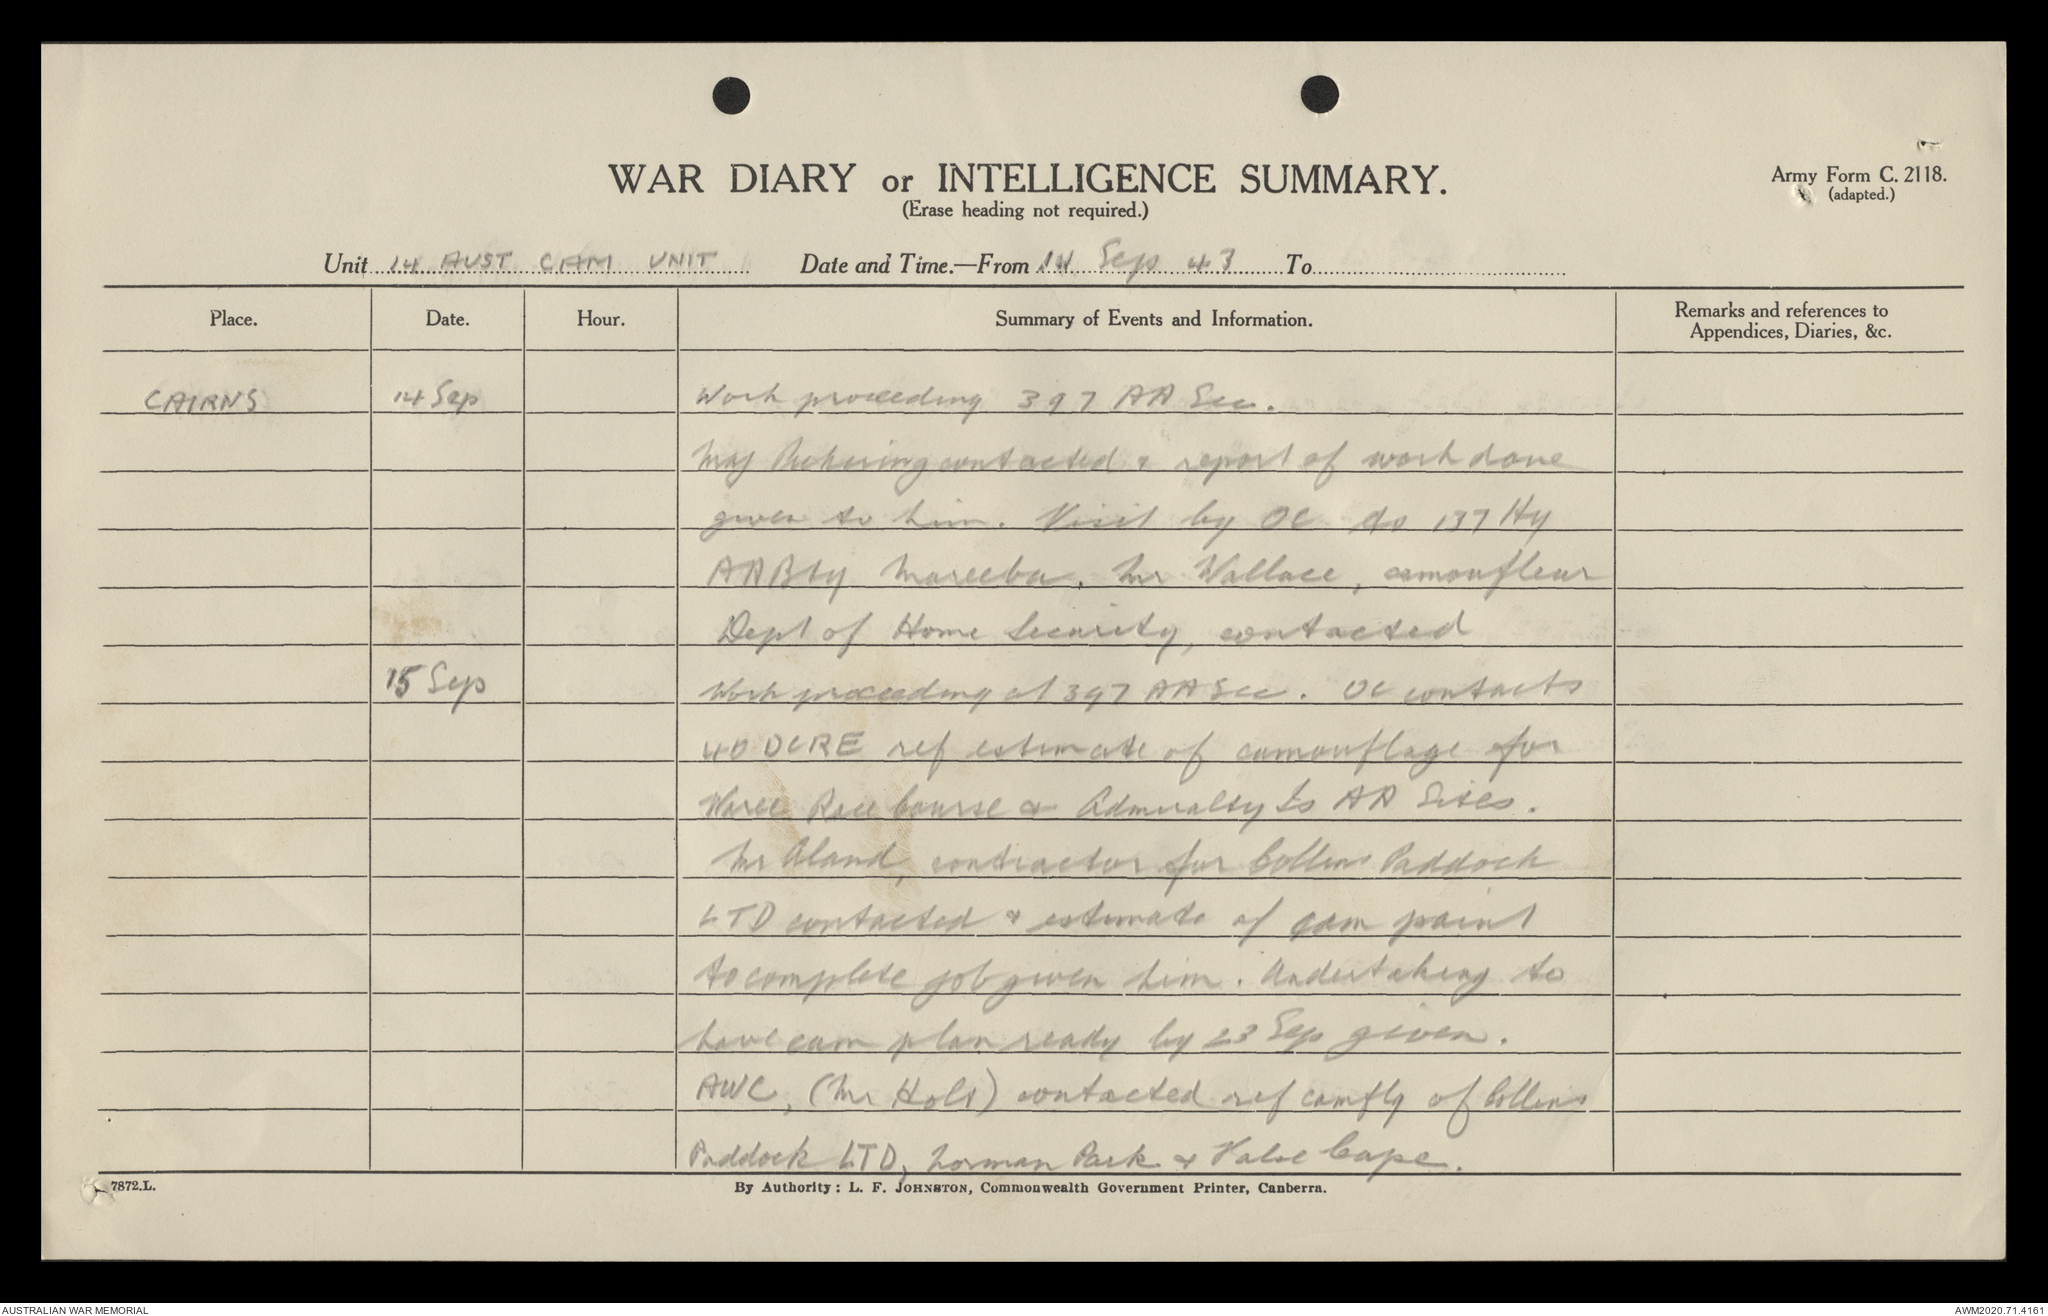 WAR DIARY or INTELLIGENCE SUMMARY.
(Erase heading not required.)
Army Form C. 2118.
(adapted.)
Unit 14 AUST CAM UNIT Date and Time.—From 14 Sep 43 To
Place. Date. Hour. Summary of Events and Information. Remarks and references to Appendices, Diaries, &c.
CAIRNS 14 Sep Work proceeding 397 AA Sec.
Maj Pickering contacted & report of work done
given to him. Visit by OC to 137 Hy
AABty Mareeba. Mr Wallace, camoufleur
Dept of Home Security, contacted
15 Sep Work proceeding at 397 AA Sec. OC contacts
40 DCRE ref estimate of camouflage for
Woree Race Course & Admiralty Is AA Sites.
Mr Aland, contractor for Collins Paddock
LTD contacted & estimate of cam paint
to complete job given him. Undertaking to
have cam plan ready by 23 Sep given.
AWC, (Mr Holt) contacted ref camflg of Collins
Paddock LTD, Norman Park & False Cape.
7872.L.
By Authority: L. F. JOHNSTON, Commonwealth Government Printer, Canberra.
AUSTRALIAN WAR MEMORIAL
AWM2020.71.4161